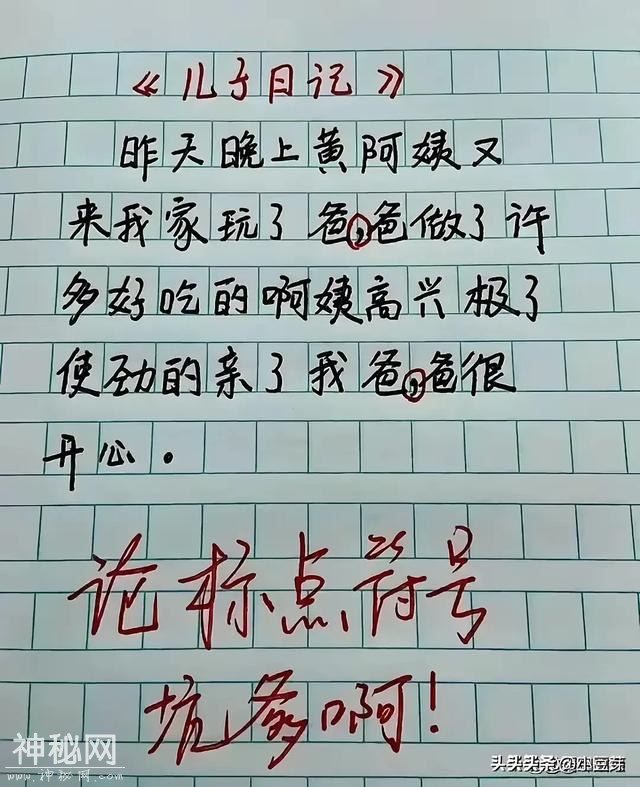 《儿子日记》
昨天晚上黄阿姨又
来我家玩了爸,爸做了许
多好吃的啊姨高兴极了
使劲的亲了我爸,爸很
开心。
论标点符号
坑爹啊!
神秘网
www.神秘网.com
头条